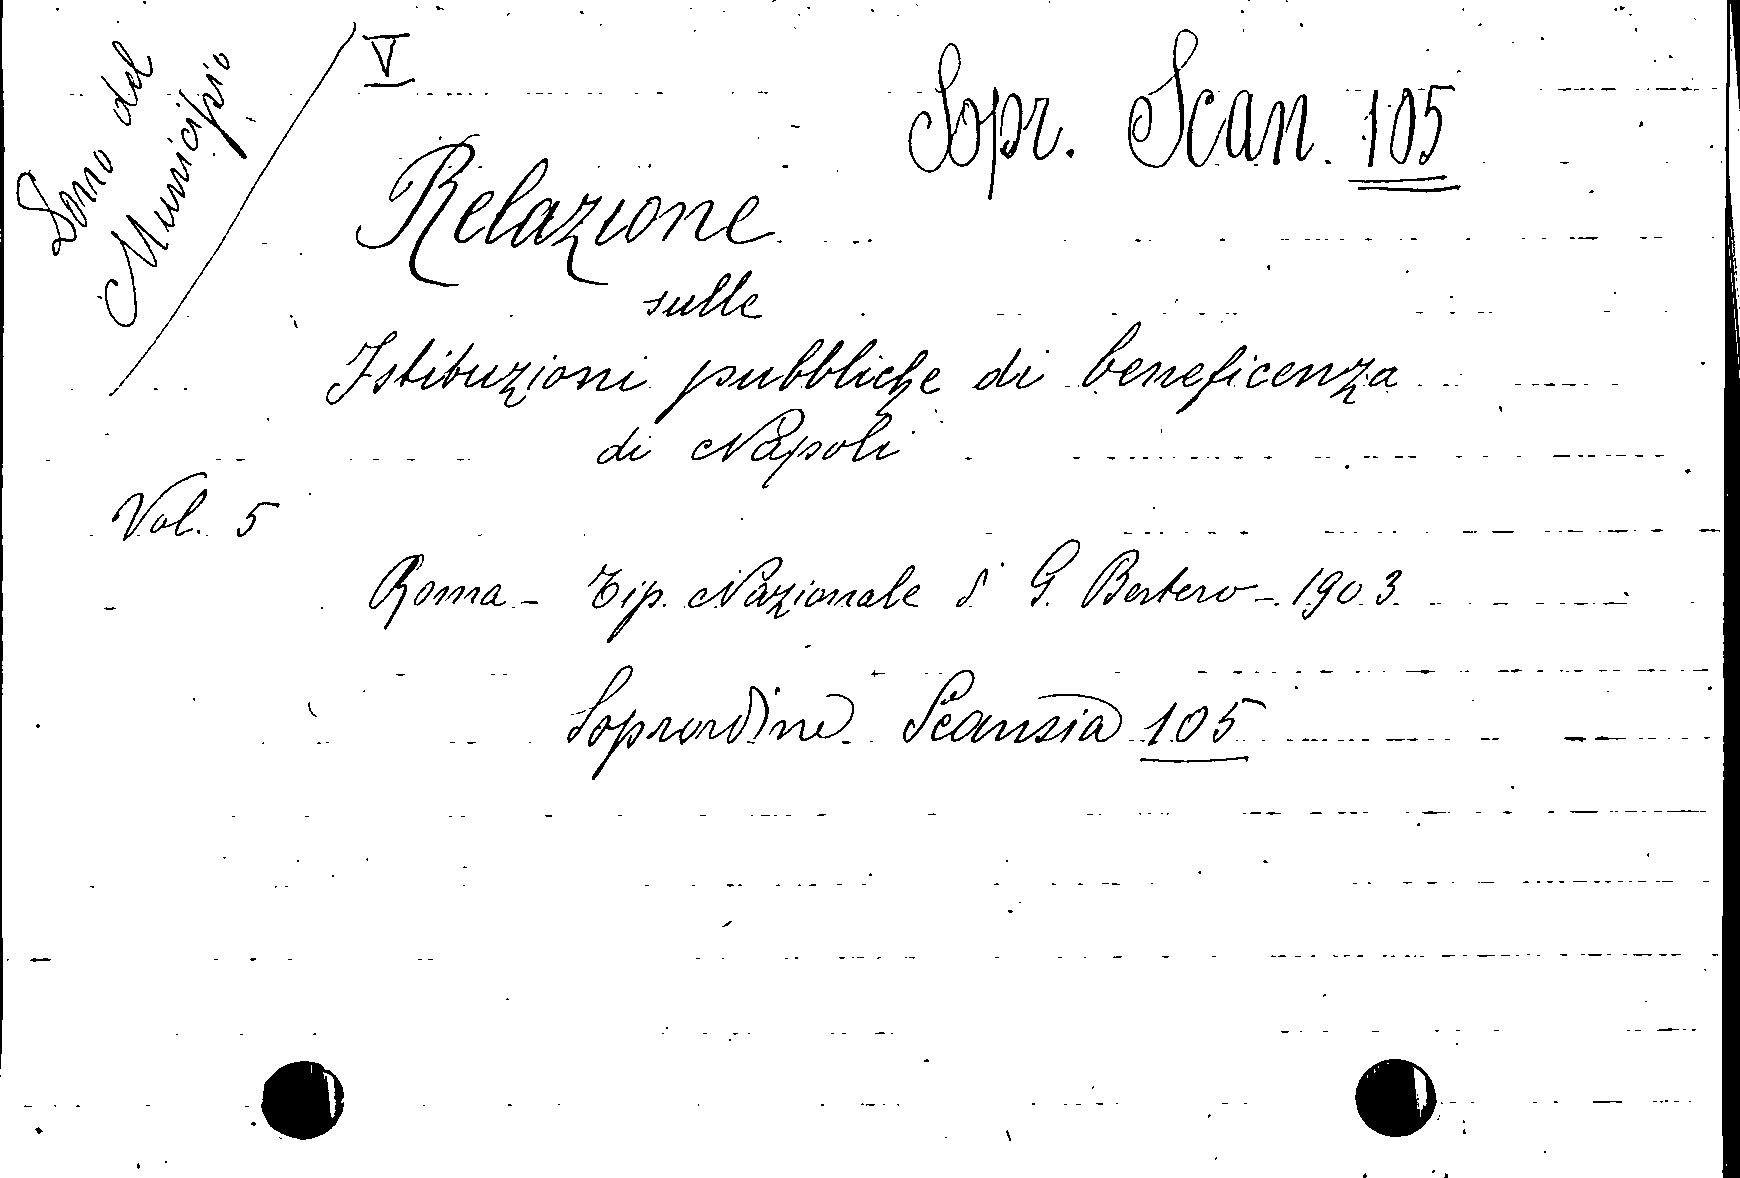 Dono del
Municipio
V
Sopr. Scan. 105
Relazione
sulle
Istituzioni pubbliche di beneficenza
di Napoli
Vol. 5
Roma - Tip. Nazionale di G. Bertero - 1903
Soprordine Scansia 105